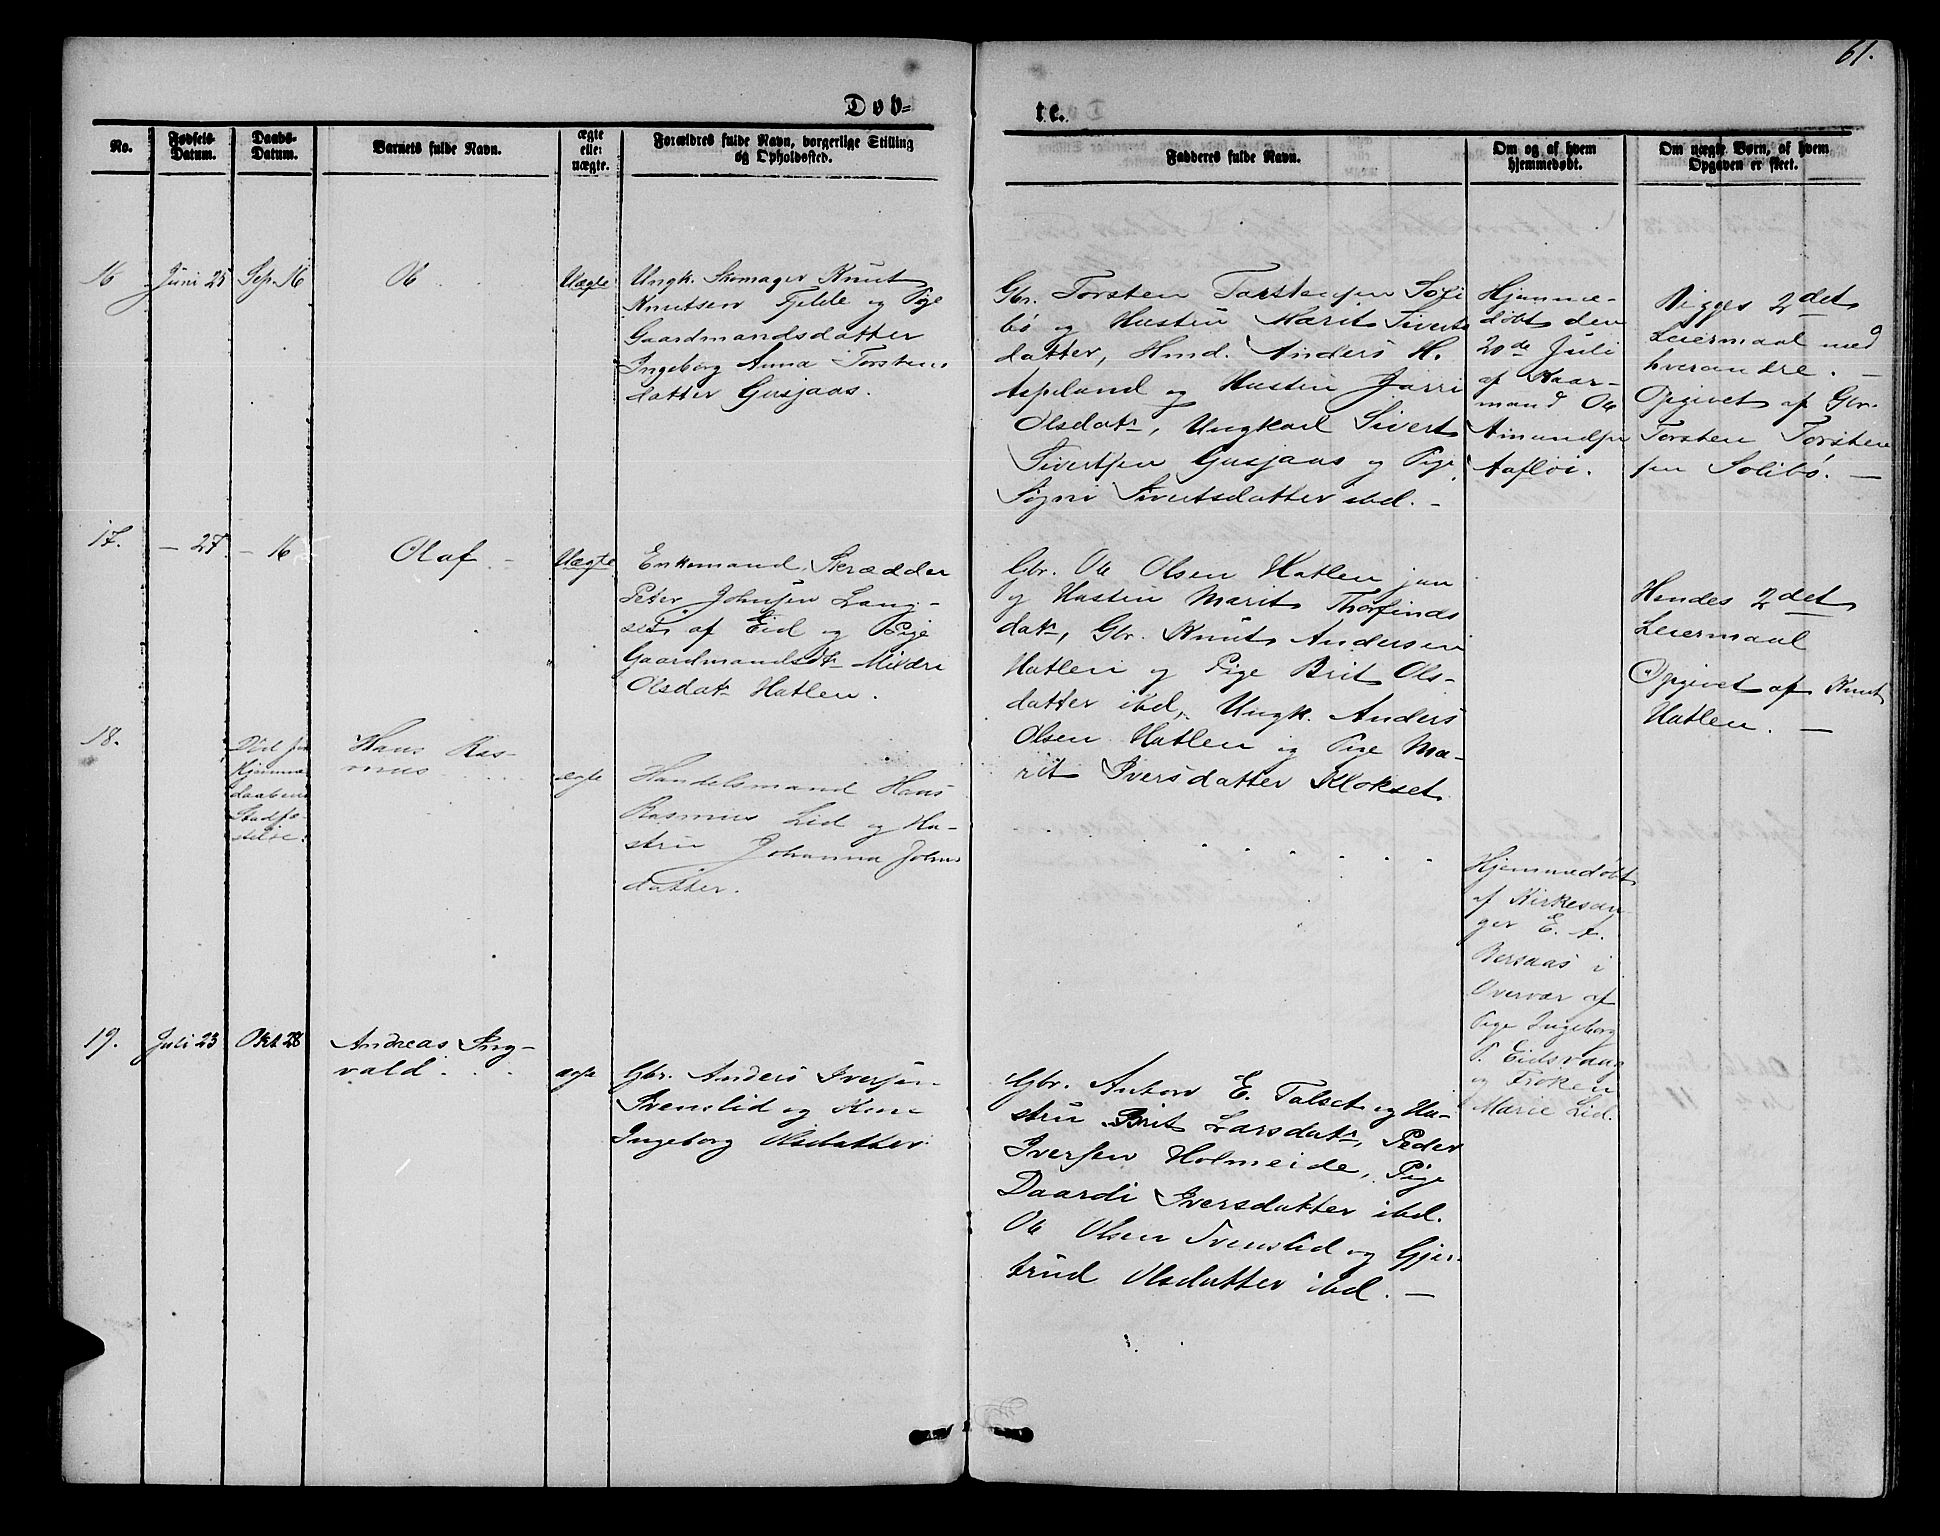 61.
Døb-
te.
No.
Fødsels-
Datum.
Daabs-
Datum.
Barnets fulde Navn.
ægte
eller
uægte.
Forældres fulde Navn, borgerlige Stilling
og Opholdssted.
Fadderes fulde Navn.
Om og af hvem
hjemmedøbt.
Om uægte Børn, af hvem
Opgaven er skeet.
16
Juni 25
Sep. 16
Ole
Uægte
Ungk. Skomager Knut
Knutsen Fjelde og Pige
Gaardmandsdatter
Ingeborg Anna Torstens
datter Gusjaas.
Gbr. Torsten Torstensen Soli
bø og Hustru Marit Siverts
datter, Hmd. Anders H.
Aspeland og Hustru
Olsdatr, Ungkarl Sivert
Sivertsen Gusjaas og Pige
Signi Sivertsdatter ibd. -
Hjemme-
døbt den
20de Juli
af Kaar-
mand Ole
Amundsen
Aafløi.
Begges 2det
Leiermaal med
hverandre. -
Opgivet af Gbr.
Torsten Torsten
sen Solibø. -
17.
- 27.
- 16
Olaf -
Uægte
Enkemand, Skrædder
Peter Johnsen Lang-
set af Eid og Pige
Gaardmandsdt Mildri
Olsdatr Hatlen.
Gbr. Ole Olsen Hatlen jun
og Hustru Marit Thorfinds
datr, Gbr. Knut Andersen
Hatlen og Pige Brit Ols-
datter ibd, Ungk. Anders
Olsen Hatlen og Pige Ma-
rit Iversdatter Klokset.
Hendes 2det
Leiermaal
Opgivet af Knut
Hatlen. -
18.
Død før
Hjemme
daabens
Stadfæ-
stelse.
Hans Ras-
mus
ægte
Handelsmand Hans
Rasmus Lid og Hu-
stru Johanna Johns
datter.
Hjemmedøbt
af Kirkesan-
ger E. A.
Bersaas i
Overvær af
Pige Ingeborg
P. Eidsvaag
og Frøken
Marie Lid.
19.
Juli 23
Okt. 28
Andreas Ing-
vald
ægte
Gbr. Anders Iversen
Svenslid og Kone
Ingeborg Olsdatter
Gbr. Anton E. Talset og Hu-
stru Brit Larsdatr, Peder
Iversen Holmeide, Pige
Daardi Iversdatter ibd.
Ole Olsen Svenslid og Gjer-
trud Olsdatter ibd. -